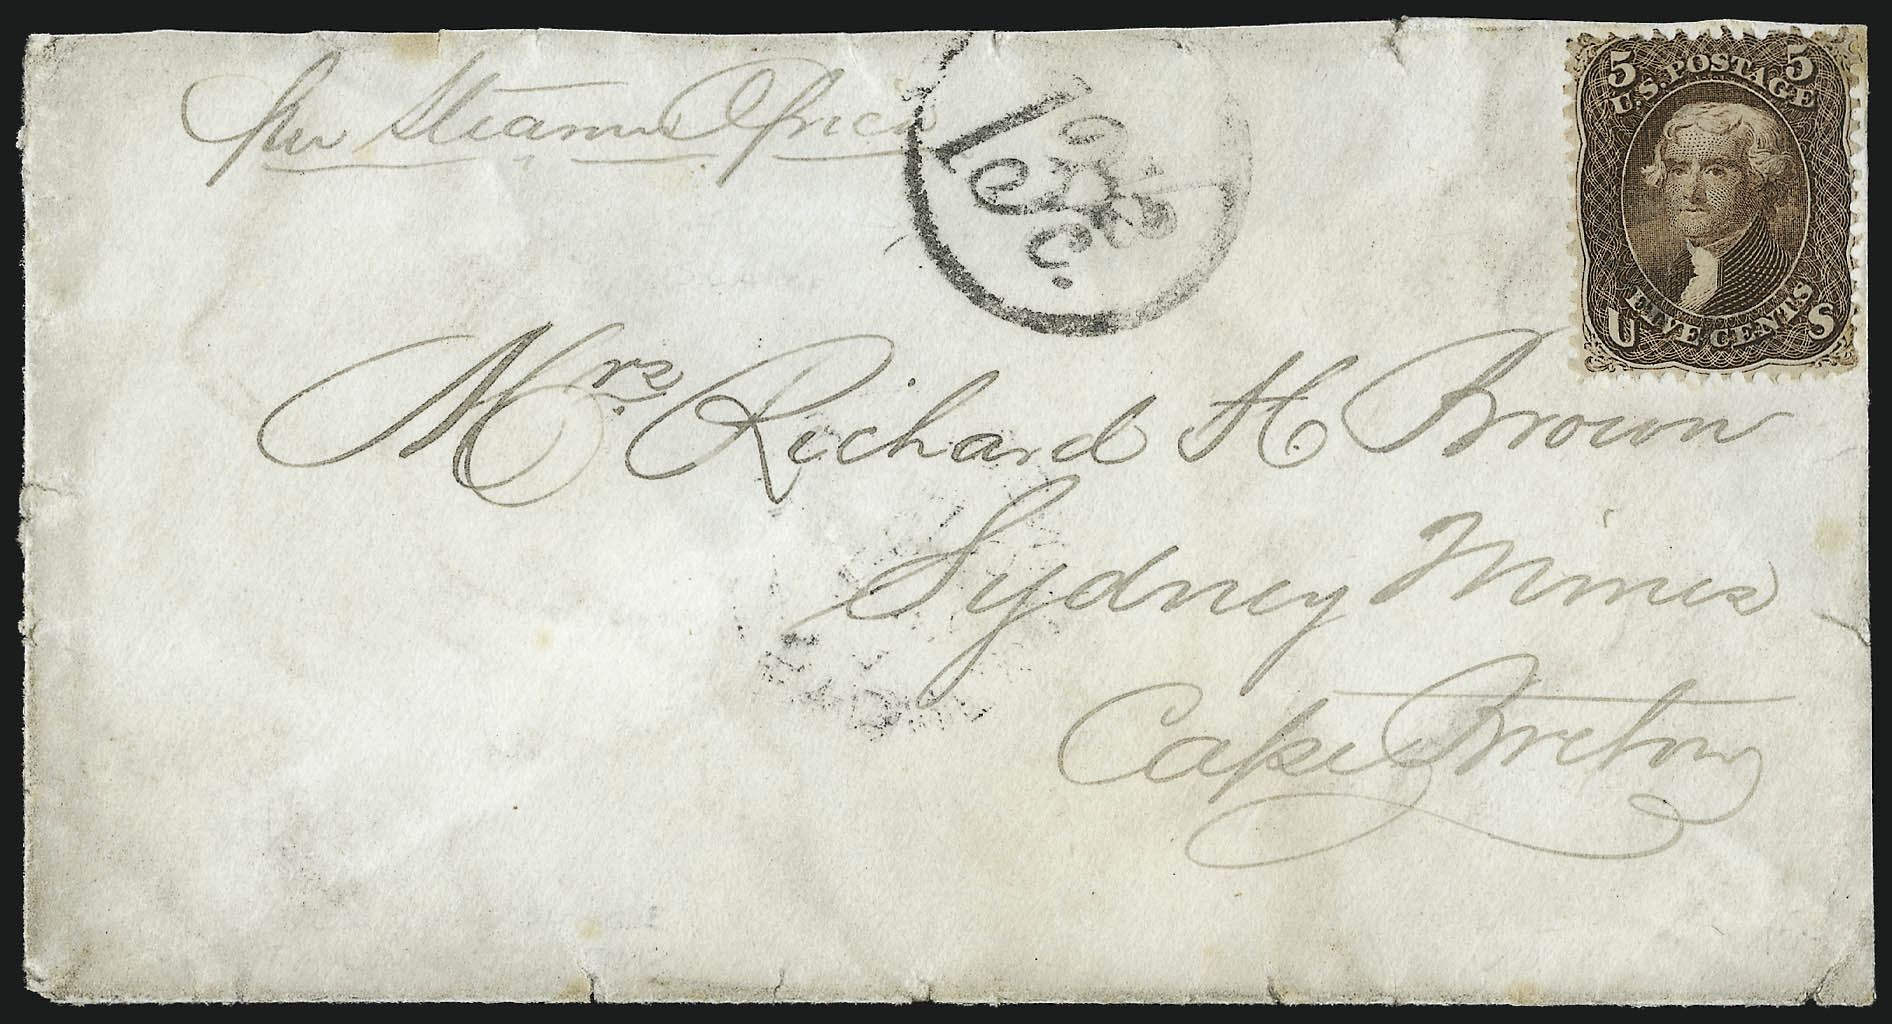 per Steamer Africa
5 U.S. POSTAGE 5
U FIVE CENTS S
Mrs. Richard H Brown
Sydney Mines
Cape Breton